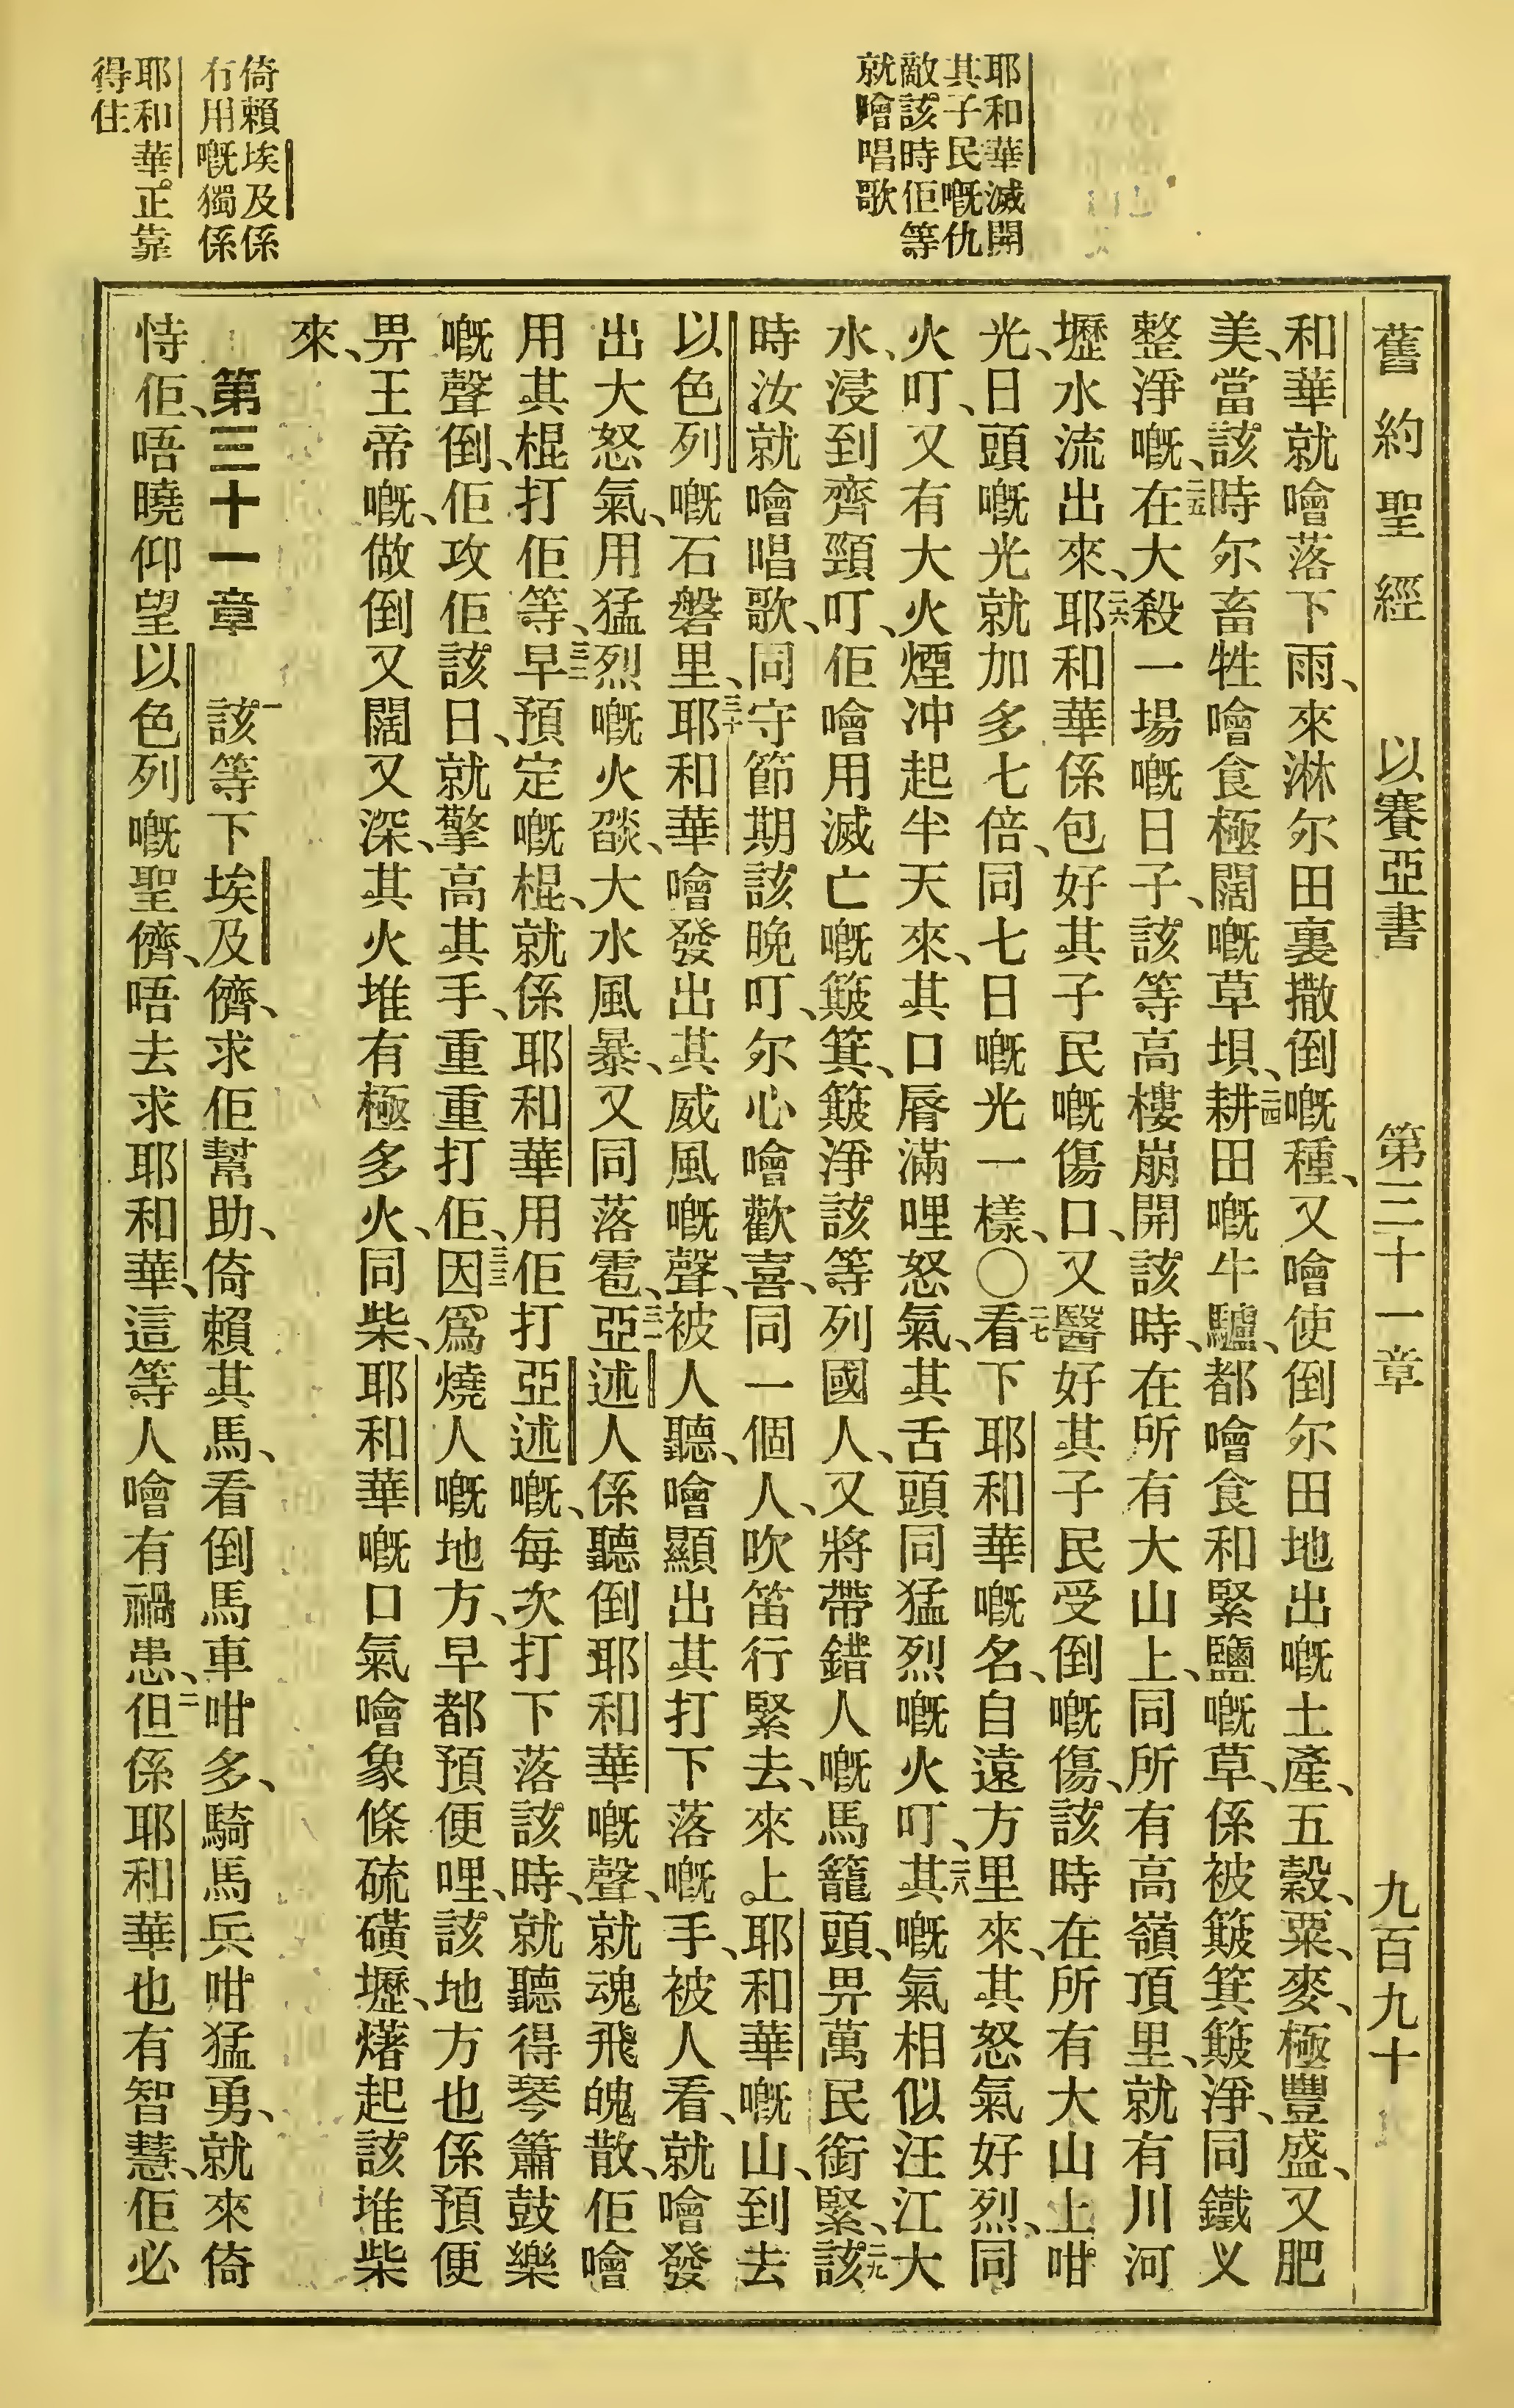 舊約聖經 以賽亞書 第三十一章 九百九十
耶和華滅開
其子民嘅仇
敵該時佢等
就噲唱歌
倚賴埃及係
冇用嘅獨係
耶和華正靠
得住
和華就噲落下雨、來淋尔田裏撒倒嘅種、又噲使倒尔田地出嘅土產、五穀、粟、麥、極豐盛、又肥
美、當該時尔畜牲噲食極闊嘅草垻、二四耕田嘅牛驢、都噲食和緊鹽嘅草、係被簸箕簸淨、同鐵义
整淨嘅、二五在大殺一場嘅日子、該等高樓崩開該時、在所有大山上、同所有高嶺頂里、就有川河
壢水流出來、二六耶和華係包好其子民嘅傷口、又醫好其子民受倒嘅傷、該時在所有大山上咁
光、日頭嘅光就加多七倍、同七日嘅光一樣、〇二七看下耶和華嘅名、自遠方里來、其怒氣好烈、同
火叮、又有大火煙冲起半天來、其口脣滿哩怒氣、其舌頭同猛烈嘅火叮、二八其嘅氣相似汪江大
水、浸到齊頸叮、佢噲用滅亡嘅簸箕、簸淨該等列國人、又將帶錯人嘅馬籠頭、畀萬民銜緊、二九該
時汝就噲唱歌、同守節期該晚叮、尔心噲歡喜、同一個人、吹笛行緊去、來上。耶和華嘅山、到去
以色列嘅石磐里、三十耶和華噲發出其威風嘅聲、被人聽、噲顯出其打下落嘅手、被人看、就噲發
出大怒氣、用猛烈嘅火燄、大水風暴、又同落雹、三一亞述人係聽倒耶和華嘅聲、就魂飛魄散、佢噲
用其棍打佢等、三二早預定嘅棍、就係耶和華用佢打亞述嘅、每次打下落該時、就聽得琴簫鼓樂
嘅聲倒、佢攻佢該日、就擎高其手、重重打佢、三三因爲燒人嘅地方、早都預便哩、該地方也係預便
畀王帝嘅、做倒又闊又深、其火堆有極多火、同柴、耶和華嘅口氣噲象條硫磺壢、㷮起該堆柴
來、
第三十一章 一該等下埃及儕、求佢幫助、倚賴其馬、看倒馬車咁多、騎馬兵咁猛勇、就來倚
恃佢、唔曉仰望以色列嘅聖儕、唔去求耶和華、這等人噲有禍患、二但係耶和華也有智慧、佢必